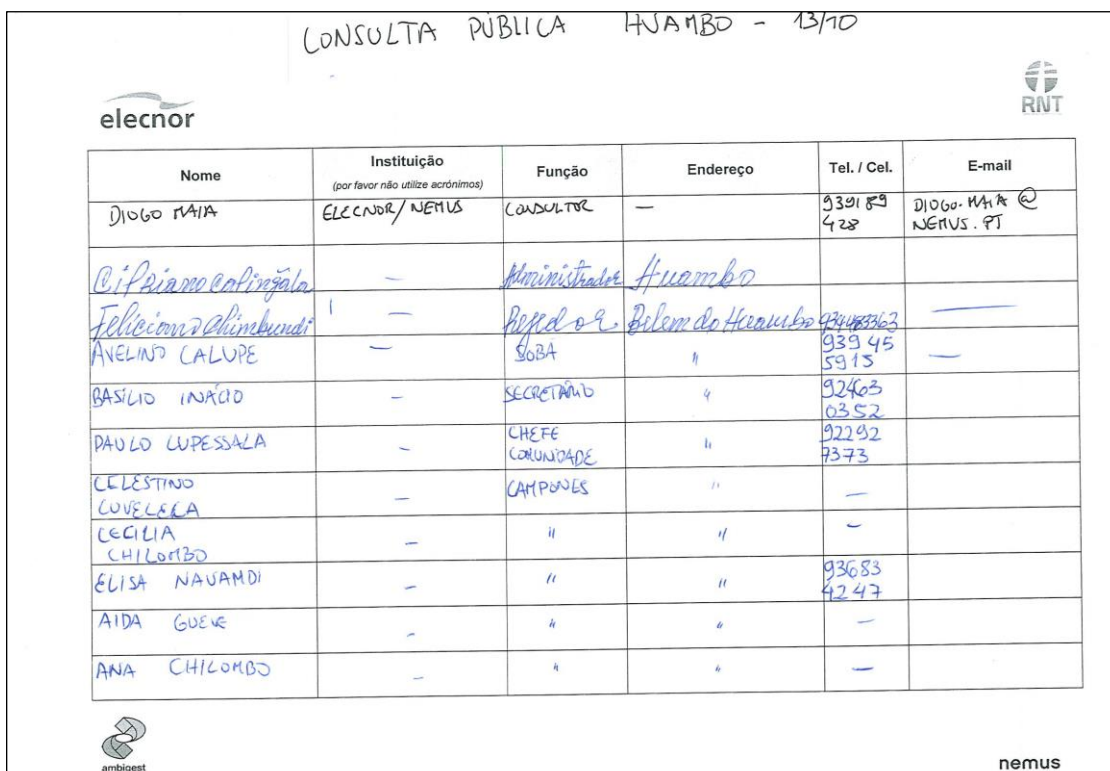 CONSULTA PÚBLICA HUAMBO - 13/10
elecnor
RNT
Nome Instituição Função Endereço Tel. / Cel. E-mail
(por favor não utilize acrónimos)
DIOGO MAIA ELECNOR/NEMUS CONSULTOR — 939189 428 DIOGO.MAIA@ NEMUS.PT
Cipriano Calingãla — Administrador Huambo
Feliciano Chimbundi — Regedor Belem do Huambo 934483363 —
AVELINO CALUPE — SOBA " 93945 5915 —
BASÍLIO INÁCIO — SECRETÁRIO " 92463 0352
PAULO LUPESSALA — CHEFE COMUNIDADE " 92292 7373
CELESTINO — CAMPONES " —
CECILIA CHILOMBO — " " —
ELISA NAUAMDI — " " 93683 4247
AIDA GUEVE — " " —
ANA CHILOMBO — " " —
ambigest
nemus